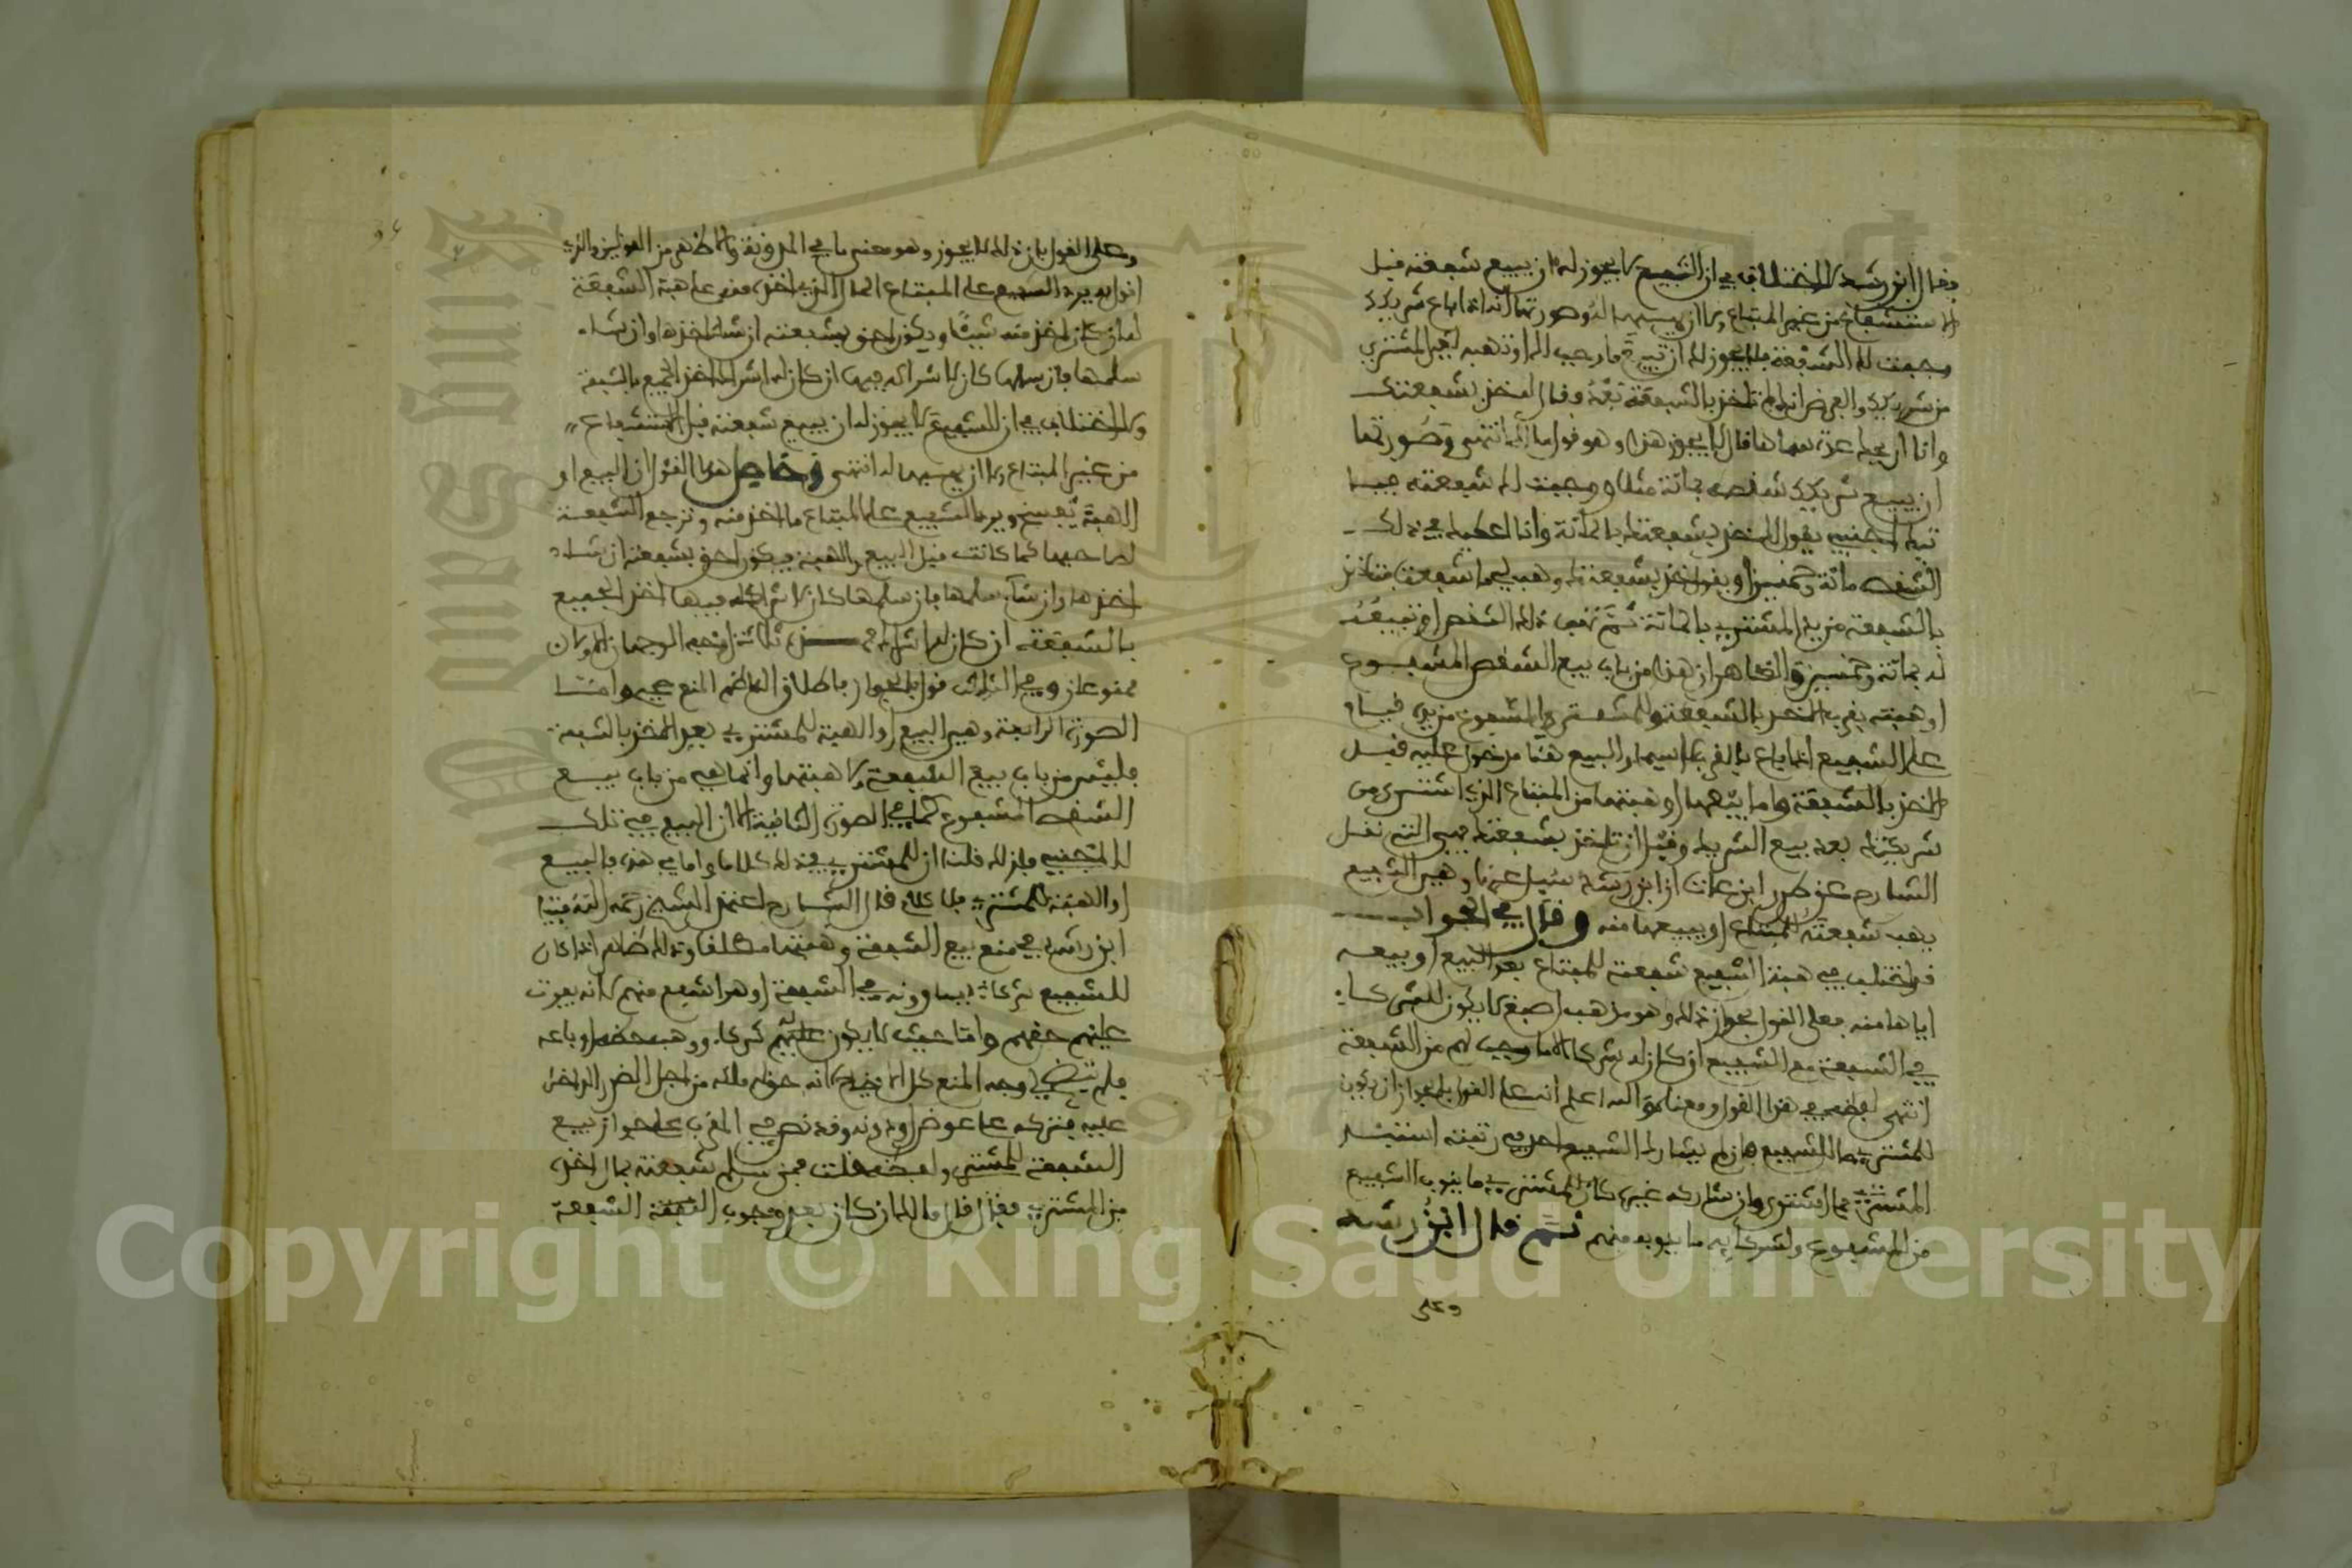 فقال ابن رشد لا اختلاف في ان الشفيع لا يجوز له ان يبيع شفعته قبل
الاستشفاع من غير المبتاع ولا ان يهبها له وصورتها انه اذا باع شريكك
وجبت لك الشفعة فلا يجوز لك ان تبيع ما وجب لك او تهبه لغير المشتري
من شريكك والغرض انك لم تاخذ بالشفعة بعد وقال له خذ بشفعتك
وانا اربحك عدة سماها قال لا يجوز هذا وهو قول مالك انتهى وصورتها
ان يبيع شريكك شقصه بمائة مثلا ووجبت لك شفعته فيا
تيك اجنبي يقول لك خذ بشفعتك بالمائة وانا اعطيك في ذلك
الشقص مائة وخمسين او يقول خذ بشفعتك وهب لي ما شفعت فتاخذ
بالشفعة من يد المشتري بالمائة ثم تهب ذلك الشقص او تبيعه
له بمائة وخمسين والظاهر ان هذا من باب بيع الشقص المشفوع
او هبته بقرب الاخذ بالشفعة والمشفوع من يده قيام
على الشفيع انما باع بالقرب لا سيما والبيع هنا مدخول عليه قبل
الاخذ بالشفعة واما بيعها او هبتها من المبتاع الذي اشترى من
شريكك بعد بيع الشريك وقبل ان تاخذ بشفعتك فهي التي نقل
الشارح عن طرر ابن عات ان ابن رشد سئل عنها وهي الشفيع
يهب شفعته للمبتاع او يبيعها منه وقال في الجواب
قد اختلف في هبة الشفيع شفعته للمبتاع بعد البيع او بيعه
اياها منه فعلى القول بجواز ذلك وهو مذهب اصبغ لا يكون للشركاء
في الشفعة مع الشفيع ان كان له شركاء الا ما وجب لهم من الشفعة
انتهى لفظه في هذا القول ومعناه والله اعلم انه على القول بالجواز ان يكون
للمشتري ما للشفيع فان لم يشارك الشفيع احد في رتبته استبد
المشتري بما اشترى وان شاركه غيره كان للمشتري ما ينوب الشفيع
من المشفوع ولشركايه ما ينوبهم منهم ثم قال ابن رشد
وعلى
وعلى القول بان ذلك لا يجوز وهو معنى ما في المدونة والاظهر من القولين والذي
اقول به يرد الشفيع على المبتاع المال الذي اخذه منه على هبة الشفعة
له ان كان اخذ منه شيئا ويكون احق بشفعته ان شاء اخذها وان شاء
سلمها فان سلمها كان لاشراكه فيها ان كان له اشراك اخذ الجميع بالشفعة
ولا اختلاف في ان للشفيع لا يجوز له ان يبيع شفعته قبل الاستشفاع
من غير المبتاع ولا ان يهبها له انتهى وحاصل هذا القول ان البيع او
الهبة يفسخ ويرد الشفيع على المبتاع ما اخذ منه وترجع الشفعة
لصاحبها كما كانت قبل البيع والهبة فيكون احق بشفعته ان شاء
اخذها وان شاء سلمها فان سلمها كان لاشراكه فيها اخذ الجميع
بالشفعة ان كان له اشراك فهذه ثلاثة اوجه الوجهان الاولان
ممنوعان وفي الثالث قول بالجواز فاطلاق الناظم المنع فيه وامـا
الصورة الرابعة وهي البيع او الهبة للمشتري بعد الاخذ بالشفعة
فليس من باب بيع الشفعة ولا هبتها وانما هي من باب بيع
الشقص المشفوع كما في الصورة الثانية الا ان البيع في تلك
للاجنبي فلذلك قلنا ان للمشتري في ذلك كلاما واما في هذه فالبيع
او الهبة للمشتري فلا كلام قال الشارح اعتمد الشيخ رحمه الله فتيا
ابن رشد في منع بيع الشفعة وهبتها مطلقا وذلك ظاهر اذا كان
للشفيع شركاء يساوونه في الشفعة او هو اشفع منهم لانه يفوت
عليهم حقهم واما حيث لا يكون عليهم شركاء ووهب حقه او باعه
فلم يتضح لي وجه المنع كل الاتضاح لانه حق له ملكه من اجل الضرر الداخل
عليه فتركه على عوض او دونه وقد نص في المقرب على جواز بيع
الشفعة للمشتري ولفظه قلت فمن سلم شفعته بمال اخذه
من المشتري فقال قال مالك ان كان بعد وجوب الصفقة الشفعة
Copyright © King Saud University
King Saud University
1957